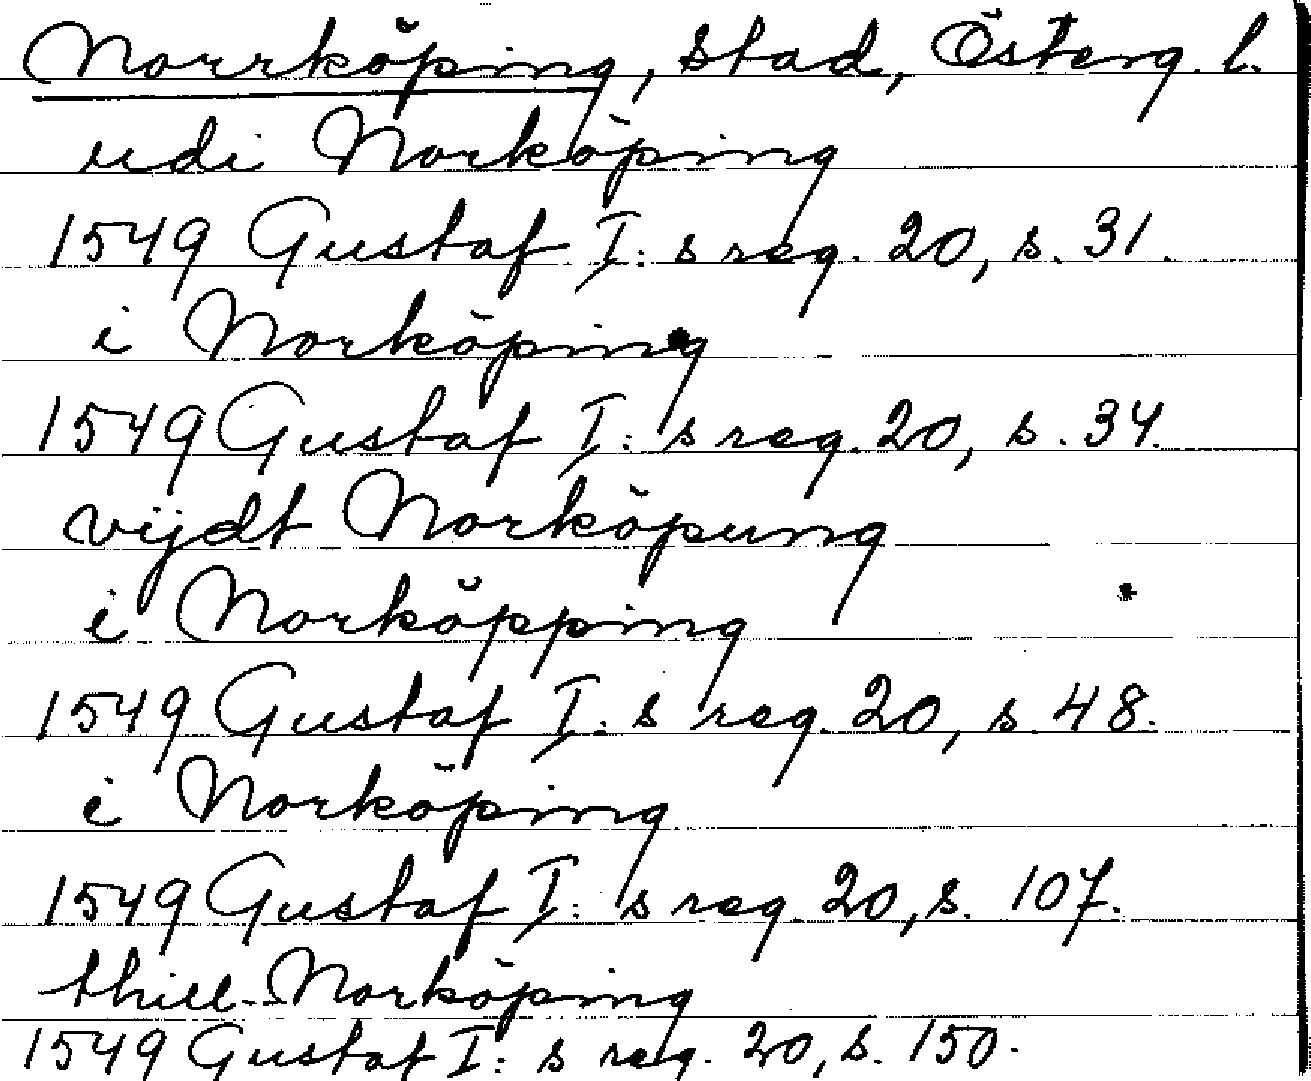 Norrköping, stad, Österg. l.
udi Norköping
1549 Gustaf I:s reg. 20, s. 31.
i Norköping
1549 Gustaf I:s reg. 20, s. 34.
vijdt Norköpung
i Norköpping
1549 Gustaf I:s reg. 20, s. 48.
i Norköping
1549 Gustaf I:s reg. 20, s. 107.
thill Norköping
1549 Gustaf I:s reg. 20, s. 150.